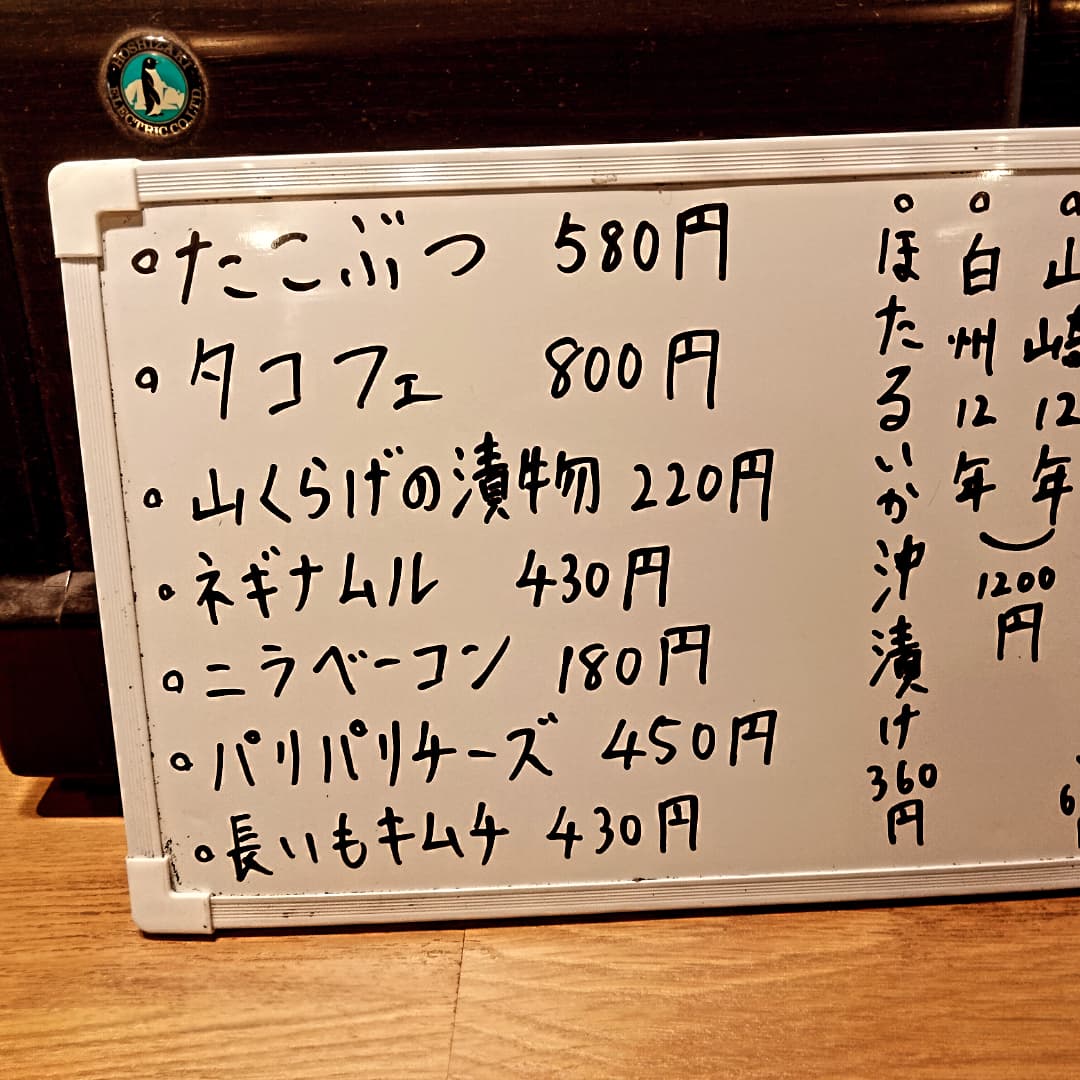 HOSHIZAKI ELECTRIC CO.,LTD.
たこぶつ 580円
タコフェ 800円
山くらげの漬物 220円
ネギナムル 430円
ニラベーコン 180円
パリパリチーズ 450円
長いもキムチ 430円
山崎12年
白州12年
1200円
ほたるいか沖漬け 360円